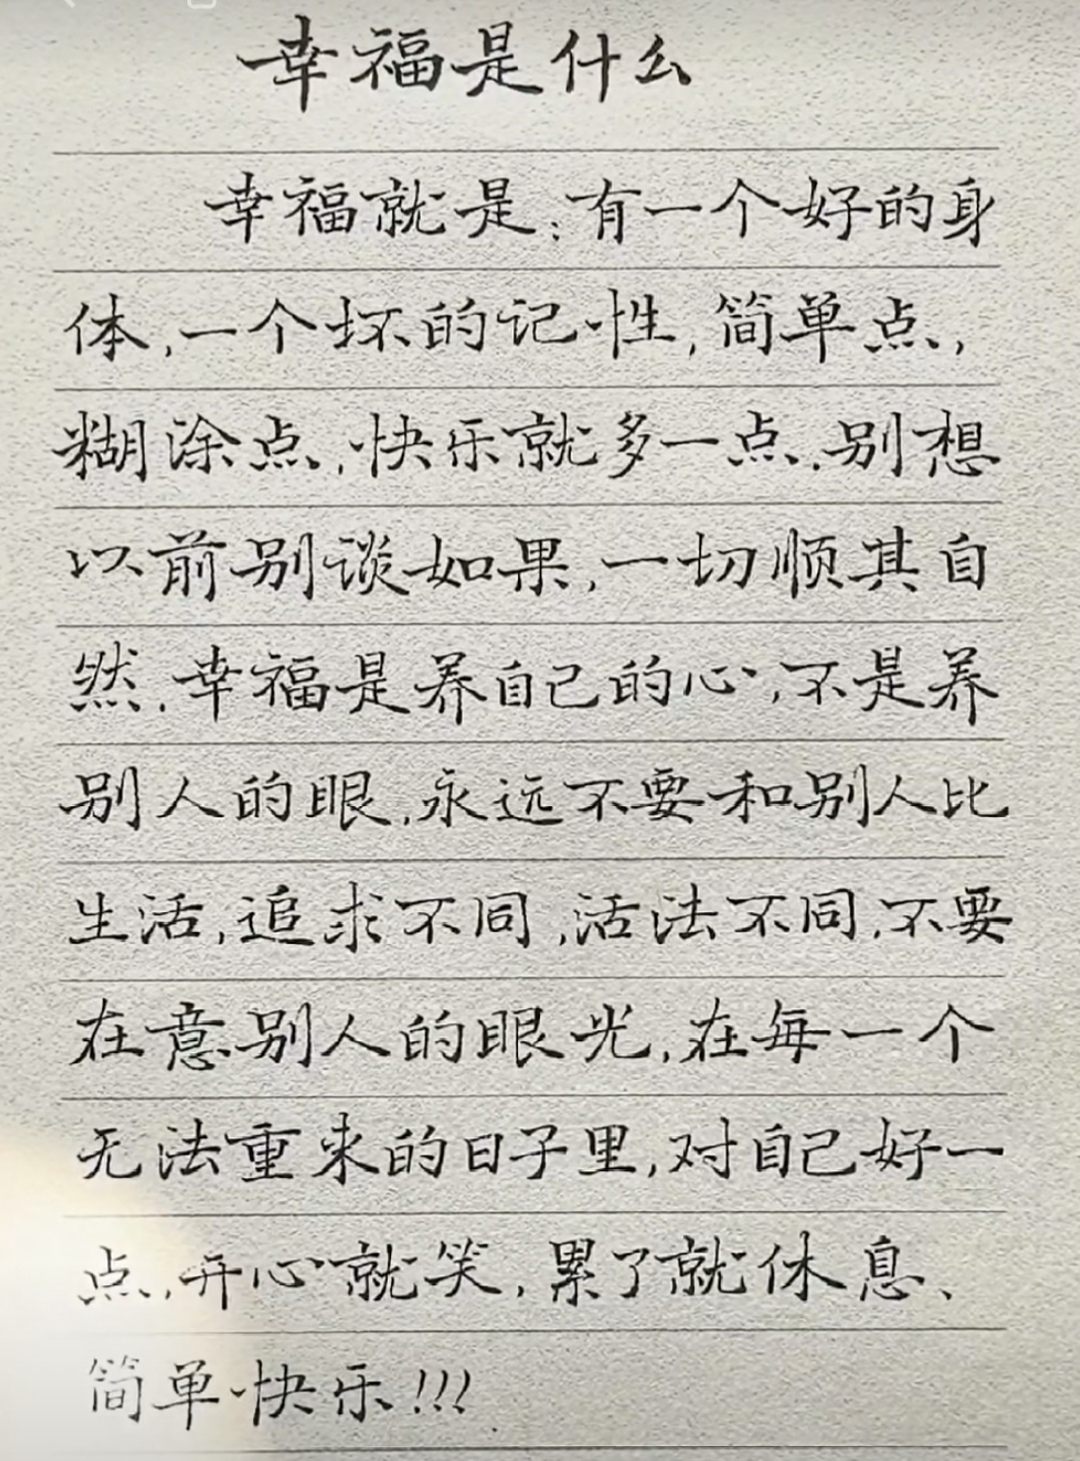 幸福是什么
幸福就是:有一个好的身
体,一个坏的记性,简单点,
糊涂点,快乐就多一点.别想
以前别谈如果,一切顺其自
然.幸福是养自己的心,不是养
别人的眼.永远不要和别人比
生活,追求不同,活法不同.不要
在意别人的眼光,在每一个
无法重来的日子里,对自己好一
点,开心就笑,累了就休息、
简单快乐!!!